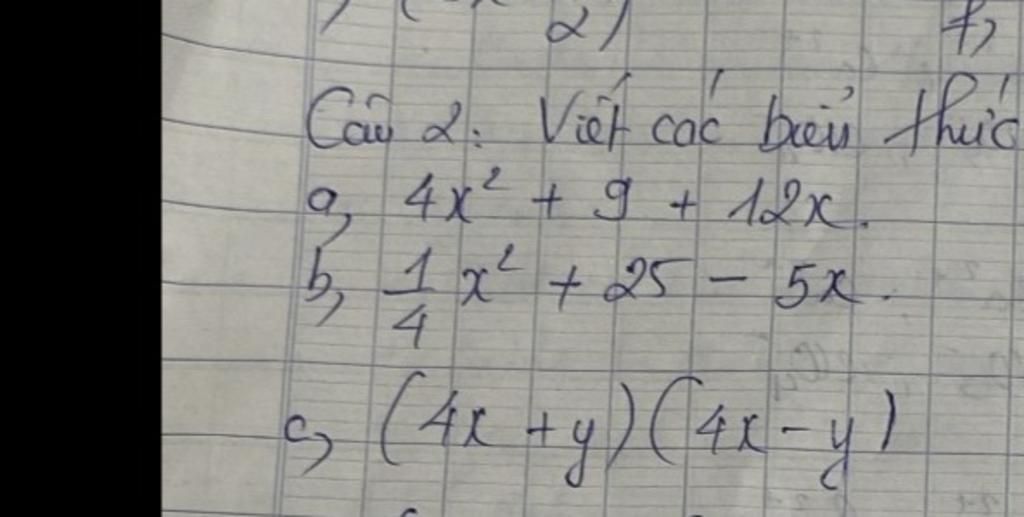 2)
f,
Câu 2: Viết các biểu thức
a, 4x² + 9 + 12x.
b, 1/4 x² + 25 - 5x.
c, (4x + y)(4x - y)